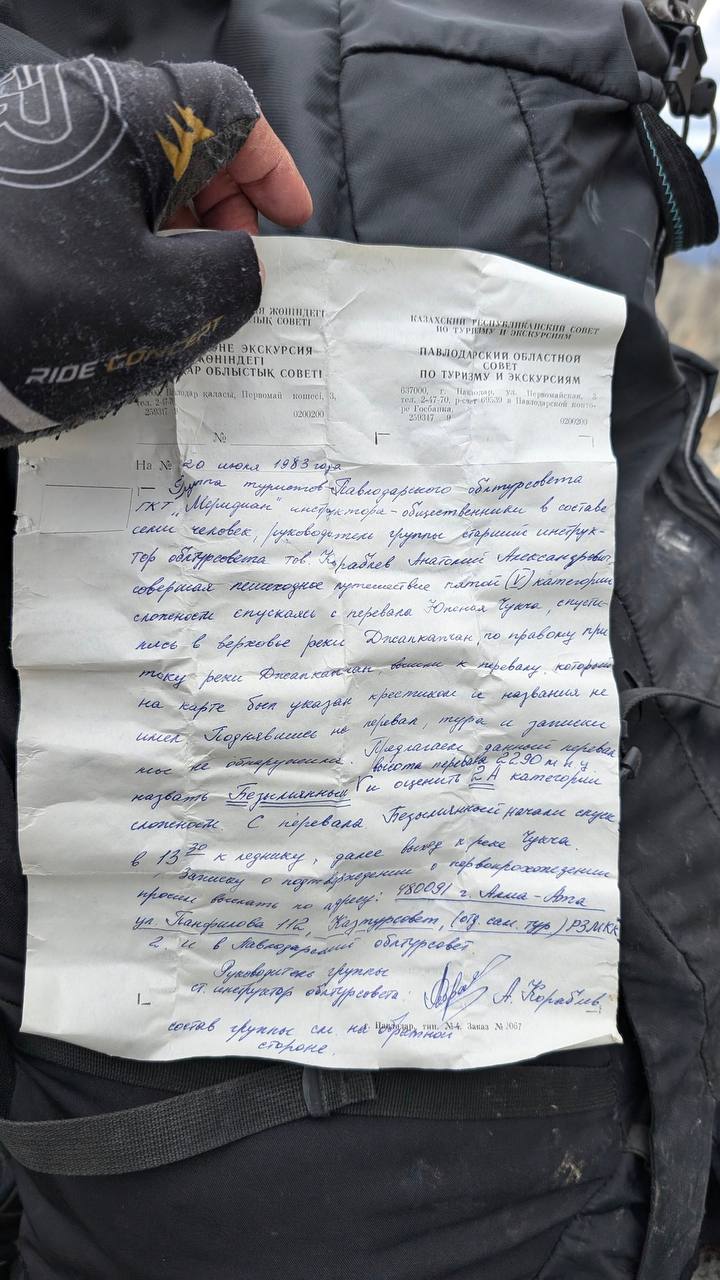 RIDE CONCEPT
ЖӨНІНДЕГІ
СОВЕТІ
ЭКСКУРСИЯ
ЖӨНІНДЕГІ
ОБЛЫСТЫҚ СОВЕТІ
қаласы, Первомай көшесі, 3,
тел. 2-47-70
259317
0200200
№
КАЗАХСКИЙ РЕСПУБЛИКАНСКИЙ СОВЕТ
ПО ТУРИЗМУ И ЭКСКУРСИЯМ
ПАВЛОДАРСКИЙ ОБЛАСТНОЙ
СОВЕТ
ПО ТУРИЗМУ И ЭКСКУРСИЯМ
637000, г. Павлодар, ул. Первомайская, 3
тел. 2-47-70, р-счет 69539 в Павлодарской конто-
ре Госбанка,
259317 9 0200200
На № 20 июля 1983 года
Группа туристов Павлодарского облтурсовета
ГКТ „Меридиан" инструктора-общественники в составе
семи человек, руководитель группы старший инструк-
тор облтурсовета тов. Кораблев Анатолий Александрович,
совершая пешеходное путешествие пятой (V) категории
сложности спускаясь с перевала Южная Чукча, спусти-
лись в верховье реки Джапкапчан, по правому при
току реки Джапкапчан, вышли к перевалу, который
на карте был указан крестиком и названия не
имел. Поднявшись на перевал, тура и записки
мы не обнаружили. Предлагаем данный перевал
высота перевала 2290 м н у
назвать Безымянный и оценить 2А категории
сложности. С перевала Безымянный начали спуск
в 13 30 к леднику, далее выход к реке Чукча.
Записку о подтверждении о первопрохождении
просим выслать по адресу: 480091 г. Алма-Ата
ул. Панфилова 112, Казтурсовет, (отд. сам. тур) РЗМКК
2. и в Павлодарский облтурсовет
Руководитель группы
ст. инструктор облтурсовета: А. Кораблев
Павлодар, тип. №4. Заказ № 2067
состав группы см. на обратной
стороне.